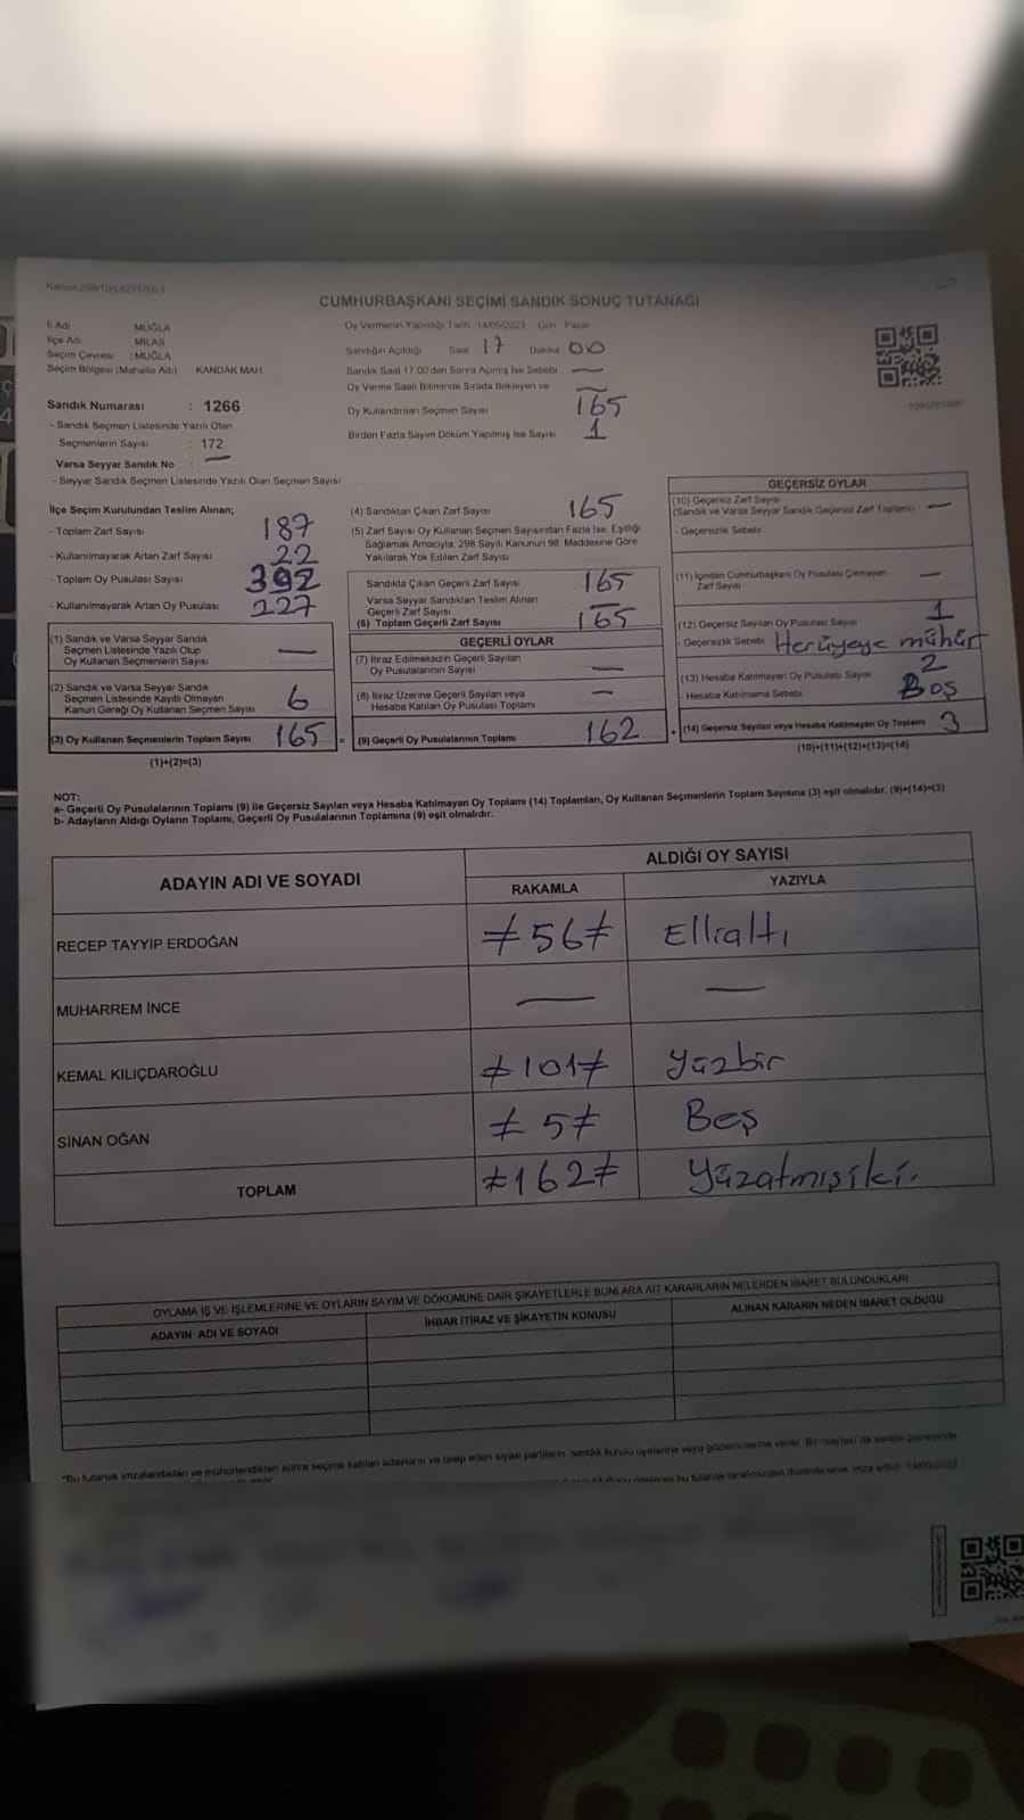 CUMHURBAŞKANI SEÇİMİ SANDIK SONUÇ TUTANAĞI
İl Adı MUĞLA
İlçe Adı MİLAS
Seçim Çevresi : MUĞLA
Seçim Bölgesi (Mahalle Adı) KANDAK MAH.
Sandık Numarası : 1266
- Sandık Seçmen Listesinde Yazılı Olan
Seçmenlerin Sayısı : 172
Varsa Seyyar Sandık No —
- Seyyar Sandık Seçmen Listesinde Yazılı Olan Seçmen Sayısı
Oy Vermenin Yapıldığı Tarih : 14/05/2023 Gün : Pazar
Sandığın Açıldığı Saat 17 Dakika 00
Sandık Saat 17:00'den Sonra Açılmış İse Sebebi —
Oy Verme Saati Bitiminde Sırada Bekleyen ve —
Oy Kullandırılan Seçmen Sayısı 165
Birden Fazla Sayım Döküm Yapılmış İse Sayısı 1
İlçe Seçim Kurulundan Teslim Alınan;
- Toplam Zarf Sayısı 187
- Kullanılmayarak Artan Zarf Sayısı 22
- Toplam Oy Pusulası Sayısı 392
- Kullanılmayarak Artan Oy Pusulası 227
(1) Sandık ve Varsa Seyyar Sandık
Seçmen Listesinde Yazılı Olup
Oy Kullanan Seçmenlerin Sayısı —
(2) Sandık ve Varsa Seyyar Sandık
Seçmen Listesinde Kayıtlı Olmayan
Kanun Gereği Oy Kullanan Seçmen Sayısı 6
(3) Oy Kullanan Seçmenlerin Toplam Sayısı 165 =
(1)+(2)=(3)
(4) Sandıktan Çıkan Zarf Sayısı 165
(5) Zarf Sayısı Oy Kullanan Seçmen Sayısından Fazla İse, Eşitliği
Sağlamak Amacıyla, 298 Sayılı Kanunun 98. Maddesine Göre
Yakılarak Yok Edilen Zarf Sayısı
Sandıkta Çıkan Geçerli Zarf Sayısı 165
Varsa Seyyar Sandıktan Teslim Alınan
Geçerli Zarf Sayısı —
(6) Toplam Geçerli Zarf Sayısı 165
GEÇERLİ OYLAR
(7) İtiraz Edilmeksizin Geçerli Sayılan
Oy Pusulalarının Sayısı —
(8) İtiraz Üzerine Geçerli Sayılan veya
Hesaba Katılan Oy Pusulası Toplamı —
(9) Geçerli Oy Pusulalarının Toplamı 162 +
GEÇERSİZ OYLAR
(10) Geçersiz Zarf Sayısı
(Sandık ve Varsa Seyyar Sandık Geçersiz Zarf Toplamı) —
- Geçersizlik Sebebi
(11) İçinden Cumhurbaşkanı Oy Pusulası Çıkmayan
Zarf Sayısı —
(12) Geçersiz Sayılan Oy Pusulası Sayısı 1
- Geçersizlik Sebebi Herüyeye mühür
(13) Hesaba Katılmayan Oy Pusulası Sayısı 2
- Hesaba Katılmama Sebebi Boş
(14) Geçersiz Sayılan veya Hesaba Katılmayan Oy Toplamı 3
(10)+(11)+(12)+(13)=(14)
NOT:
a- Geçerli Oy Pusulalarının Toplamı (9) ile Geçersiz Sayılan veya Hesaba Katılmayan Oy Toplamı (14) Toplamları, Oy Kullanan Seçmenlerin Toplam Sayısına (3) eşit olmalıdır. (9)+(14)=(3)
b- Adayların Aldığı Oyların Toplamı, Geçerli Oy Pusulalarının Toplamına (9) eşit olmalıdır.
ADAYIN ADI VE SOYADI ALDIĞI OY SAYISI
RAKAMLA YAZIYLA
RECEP TAYYİP ERDOĞAN ≠56≠ Ellialtı
MUHARREM İNCE — —
KEMAL KILIÇDAROĞLU ≠101≠ Yüzbir
SİNAN OĞAN ≠5≠ Beş
TOPLAM ≠162≠ Yüzatmışiki.
OYLAMA İŞ VE İŞLEMLERİNE VE OYLARIN SAYIM VE DÖKÜMÜNE DAİR ŞİKAYETLERLE BUNLARA AİT KARARLARIN NELERDEN İBARET BULUNDUKLARI
ADAYIN ADI VE SOYADI İHBAR İTİRAZ VE ŞİKAYETİN KONUSU ALINAN KARARIN NEDEN İBARET OLDUĞU